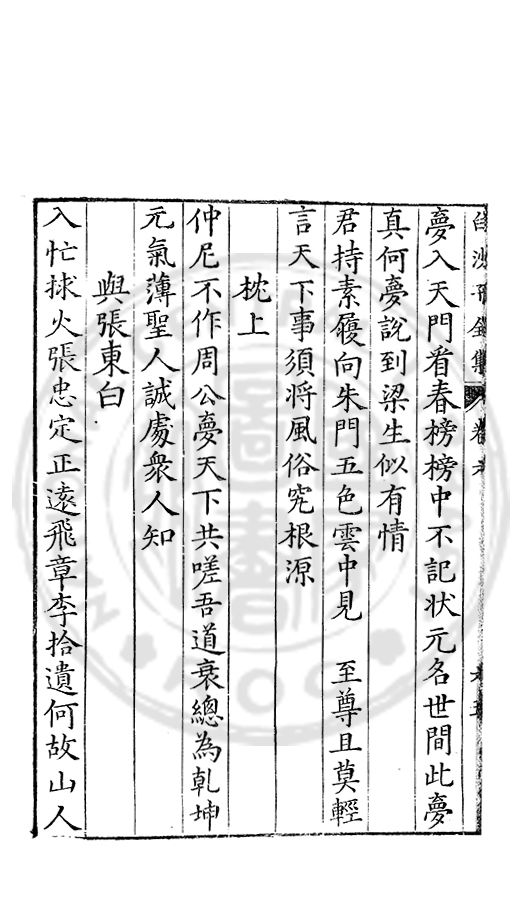 白沙子全集 卷之
夢入天門看春榜榜中不記状元名世間此夢
真何夢說到梁生似有情
君持素履向朱門五色雲中見 至尊且莫輕
言天下事須將風俗究根源
枕上
仲尼不作周公夢天下共嗟吾道衰總為乹坤
元氣薄聖人誠處衆人知
與張東白
入忙捄火張忠定正遠飛章李拾遺何故山人